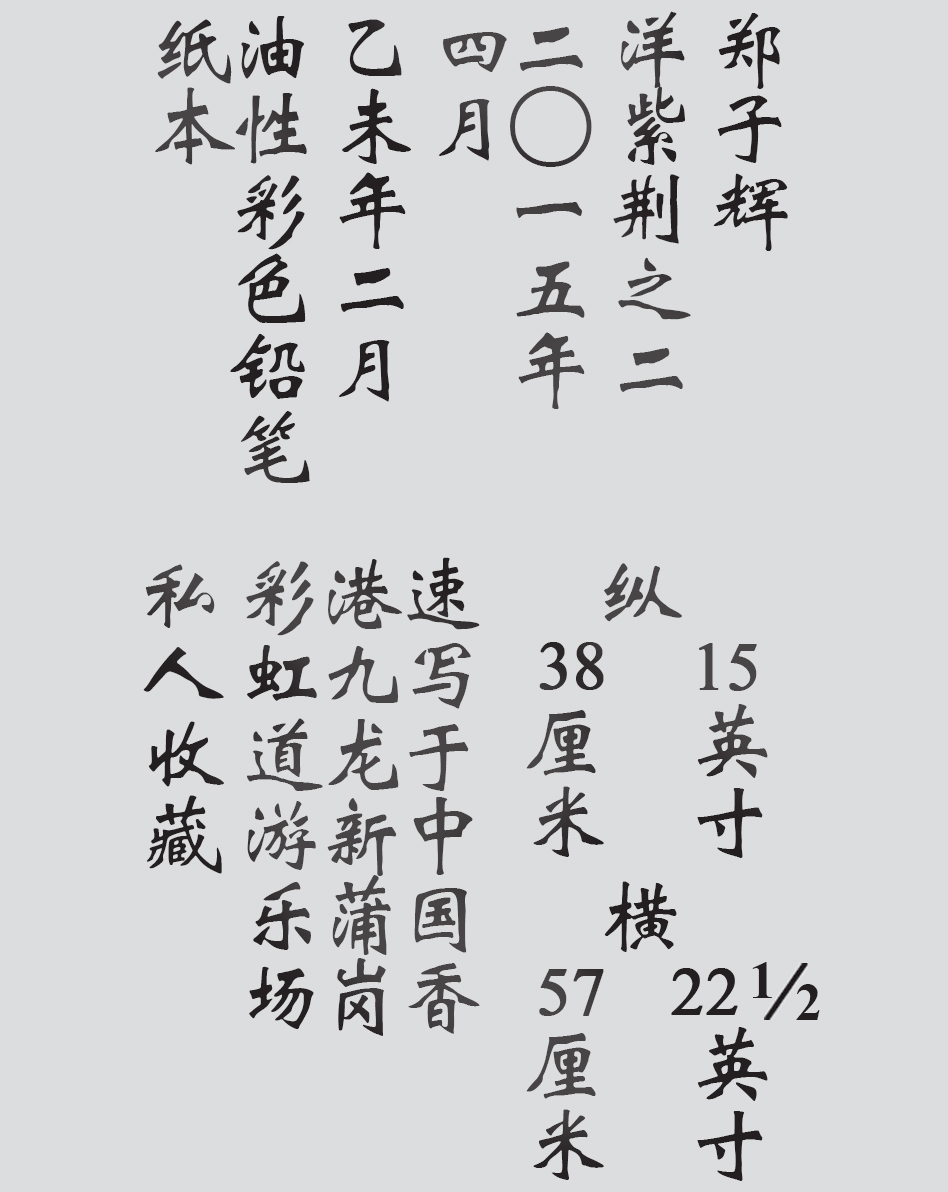 郑子辉
洋紫荆之二
二〇一五年
四月
乙未年二月
油性彩色铅笔
纸本
纵
15英寸
38厘米
横
22 1/2英寸
57厘米
速写于中国香
港九龙新蒲岗
彩虹道游乐场
私人收藏